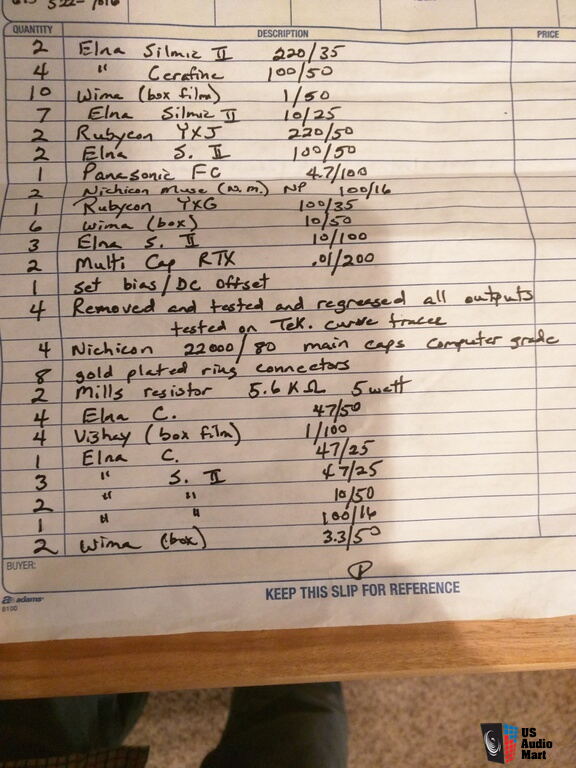 QUANTITY DESCRIPTION PRICE
2 Elna Silmic II 220/35
4 " Cerafine 100/50
10 Wima (box film) 1/50
7 Elna Silmic II 10/25
2 Rubycon YXJ 220/50
2 Elna S. II 100/50
1 Panasonic FC 4.7/100
2 Nichicon Muse (N.M.) NP 100/16
1 Rubycon YXG 100/35
6 Wima (box) 10/50
3 Elna S. II 10/100
2 Multi Cap RTX .01/200
1 set bias/DC offset
4 Removed and tested and regreased all outputs
tested on Tek. curve tracer
4 Nichicon 22000/80 main caps computer grade
8 gold plated ring connectors
2 Mills resistor 5.6 KΩ 5 watt
4 Elna C. 47/50
4 Vishay (box film) 1/100
1 Elna C. 47/25
3 " S. II 47/25
2 " " 10/50
1 " " 100/16
2 Wima (box) 3.3/50
BUYER:
P
KEEP THIS SLIP FOR REFERENCE
adams
8100
US
Audio
Mart